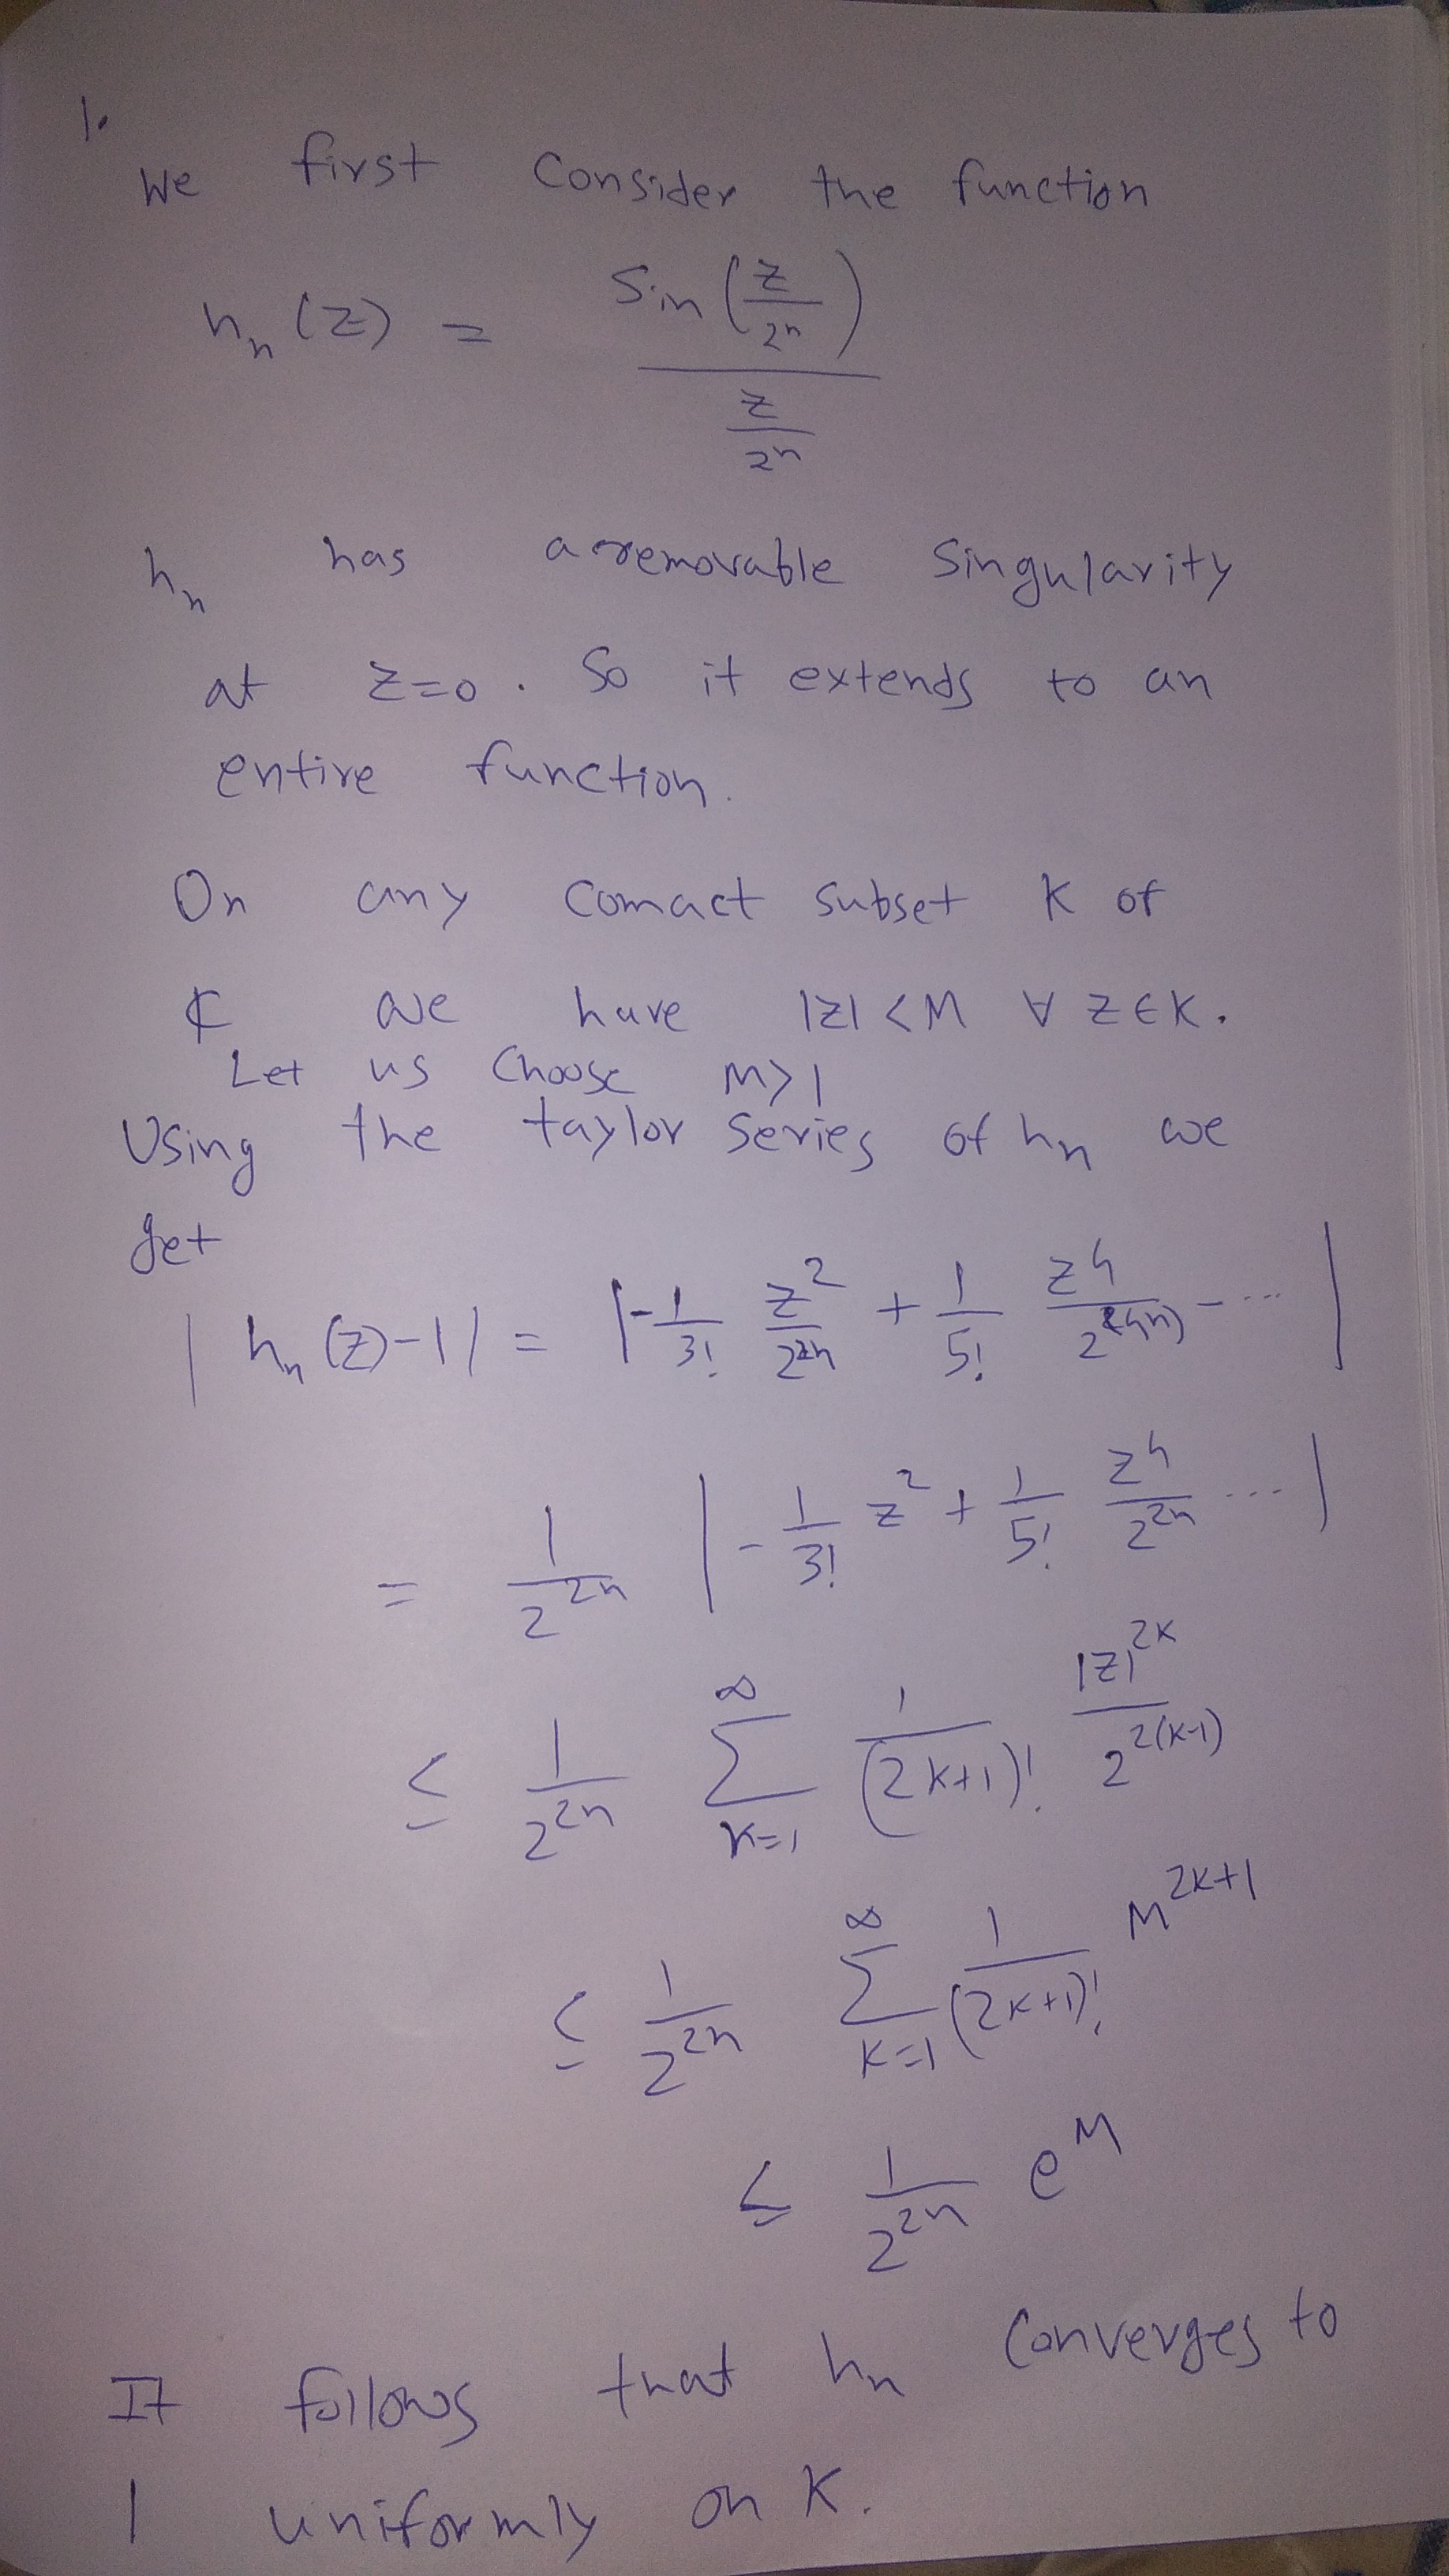 1.
We first consider the function
h_n (z) = sin(z/2^n) / (z/2^n)
h_n has a removable singularity
at z=0 . So it extends to an
entire function.
On any comact subset K of
ℂ we have |z| < M ∀ z ∈ K.
Let us choose M>1
Using the taylor series of h_n we
get
| h_n (z)-1 | = | -1/3! z^2/2^{2n} + 1/5! z^4/2^{(4n)} - ... |
= 1/2^{2n} | -1/3! z^2 + 1/5! z^4/2^{2n} ... |
≤ 1/2^{2n} ∑_{k=1}^{∞} 1/(2k+1)! |z|^{2k}/2^{2(k-1)}
≤ 1/2^{2n} ∑_{k=1}^{∞} 1/(2k+1)! M^{2k+1}
≤ 1/2^{2n} e^M
It follows that h_n converges to
1 uniformly on K.